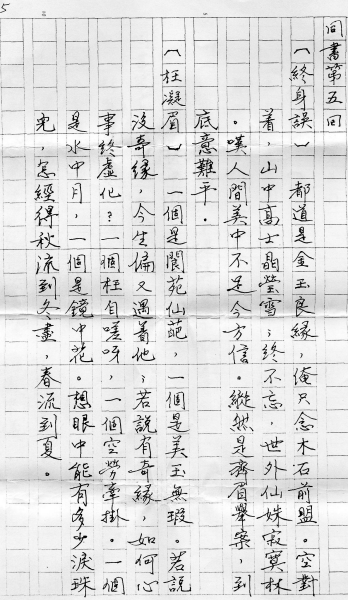 5
同書第五回
(終身誤) 都道是金玉良緣,俺只念木石前盟。空對
着,山中高士晶瑩雪;終不忘,世外仙姝寂寞林
。嘆人間美中不足今方信。縱然是齊眉舉案,到
底意難平.
(枉凝眉) 一個是閬苑仙葩,一個是美玉無瑕。若說
沒奇緣,今生偏又遇着他;若說有奇緣,如何心
事終虛化?一個枉自嗟呀,一個空勞牽掛。一個
是水中月,一個是鏡中花。想眼中能有多少淚珠
兒,怎經得秋流到冬盡,春流到夏。